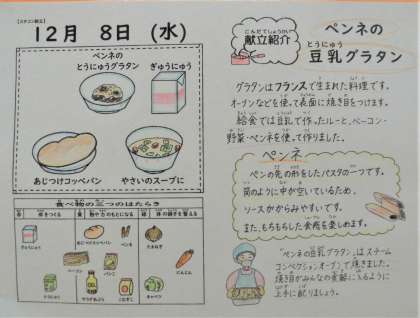 12月 8日 (水)
ペンネの
とうにゅうグラタン
ぎゅうにゅう
あじつけコッペパン
やさいのスープに
食べ物の三つのはたらき
ぎゅうにゅう
あじつけコッペパン
ペンネ
たまねぎ
ベーコン
パンこ
にんじん
とうにゅう
こむぎこ
キャベツ
こんだてしょうかい
献立紹介
ペンネの
とうにゅう
豆乳グラタン
グラタンはフランスで生まれた料理です。
オーブンなどを使って表面に焼き目をつけます。
給食では豆乳で作ったルーと、ベーコン・
野菜・ペンネを使って作りました。
ペンネ
ペン の先の形をしたパスタの一つです。
筒のように中が空いているため、
ソースがからみやすいです。
また、もちもちした食感を楽しめます。
"ペンネの豆乳グラタン"はスチーム
コンベクションオーブンで焼きました。
焼き目がみんなの食器に入るように
上手に配りましょう。